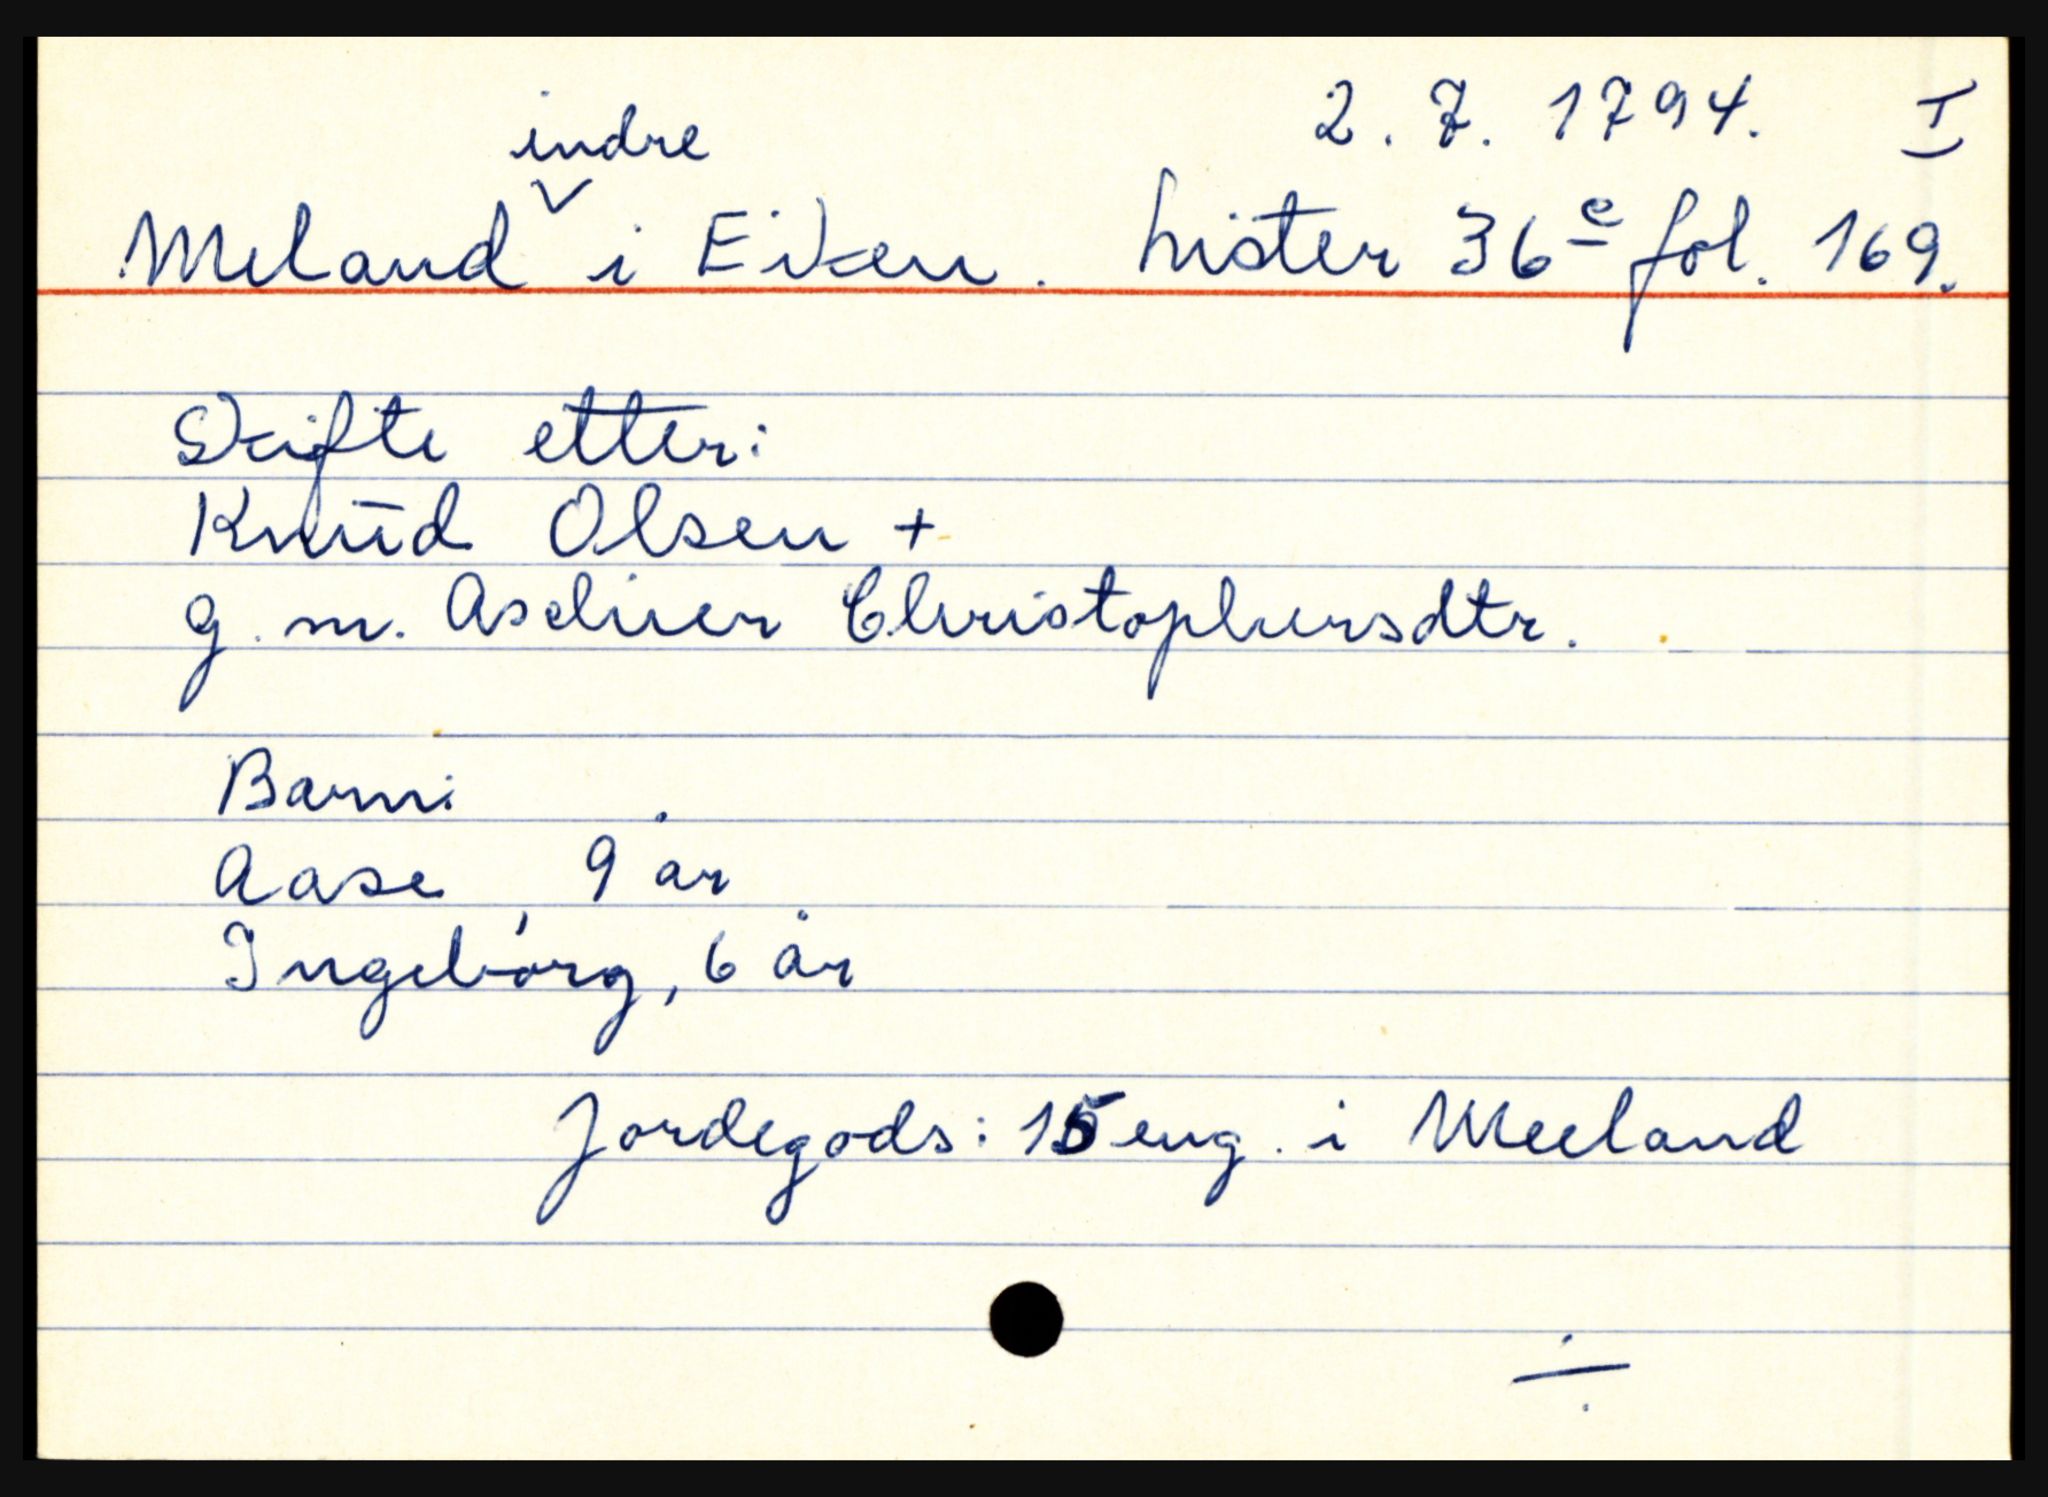 2. 7. 1794. I
indre
Meland ˅ i Eiken. Lister 36e fol. 169.
Skifte etter:
Knud Olsen +
g. m. Aseluer Christophersdtr.
Barn:
Aase, 9 år
Ingeborg, 6 år
Jordegods: 15 eng. i Meeland
÷